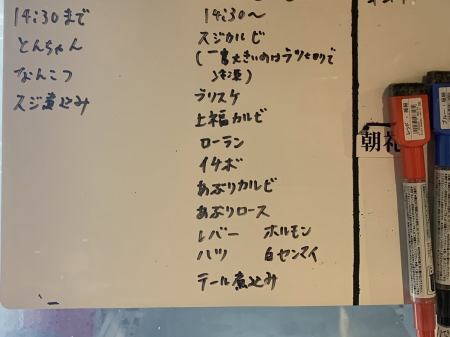 14:30まで
とんちゃん
なんこつ
スジ煮込み
14:30〜
スジカルビ
(一番大きいのはラップ切りで
冷凍)
ラリスケ
上福カルビ
ローラン
イチボ
あぶりカルビ
あぶりロース
レバー ホルモン
ハツ 白センマイ
テール煮込み
朝礼